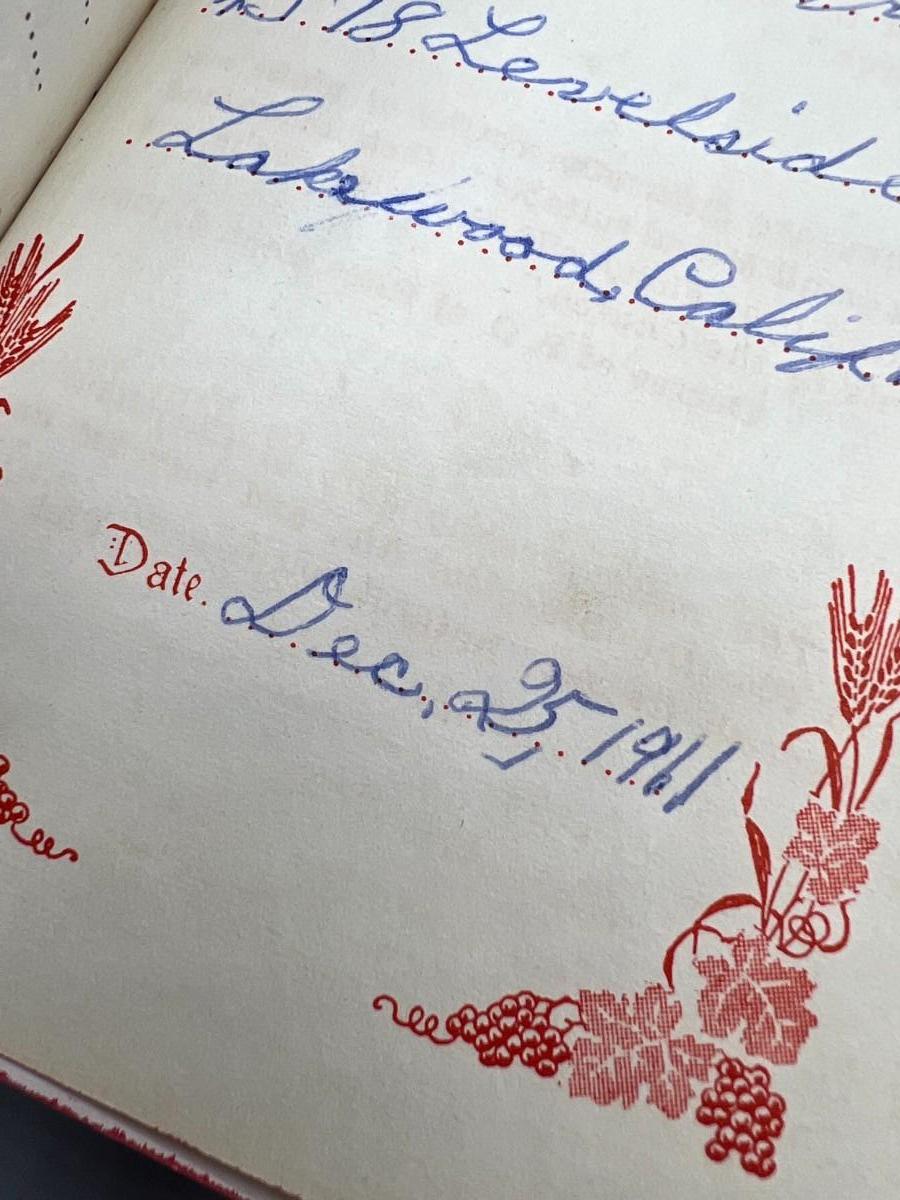 18 Levelside
Lakewood, Calif.
Date. Dec. 25, 1961